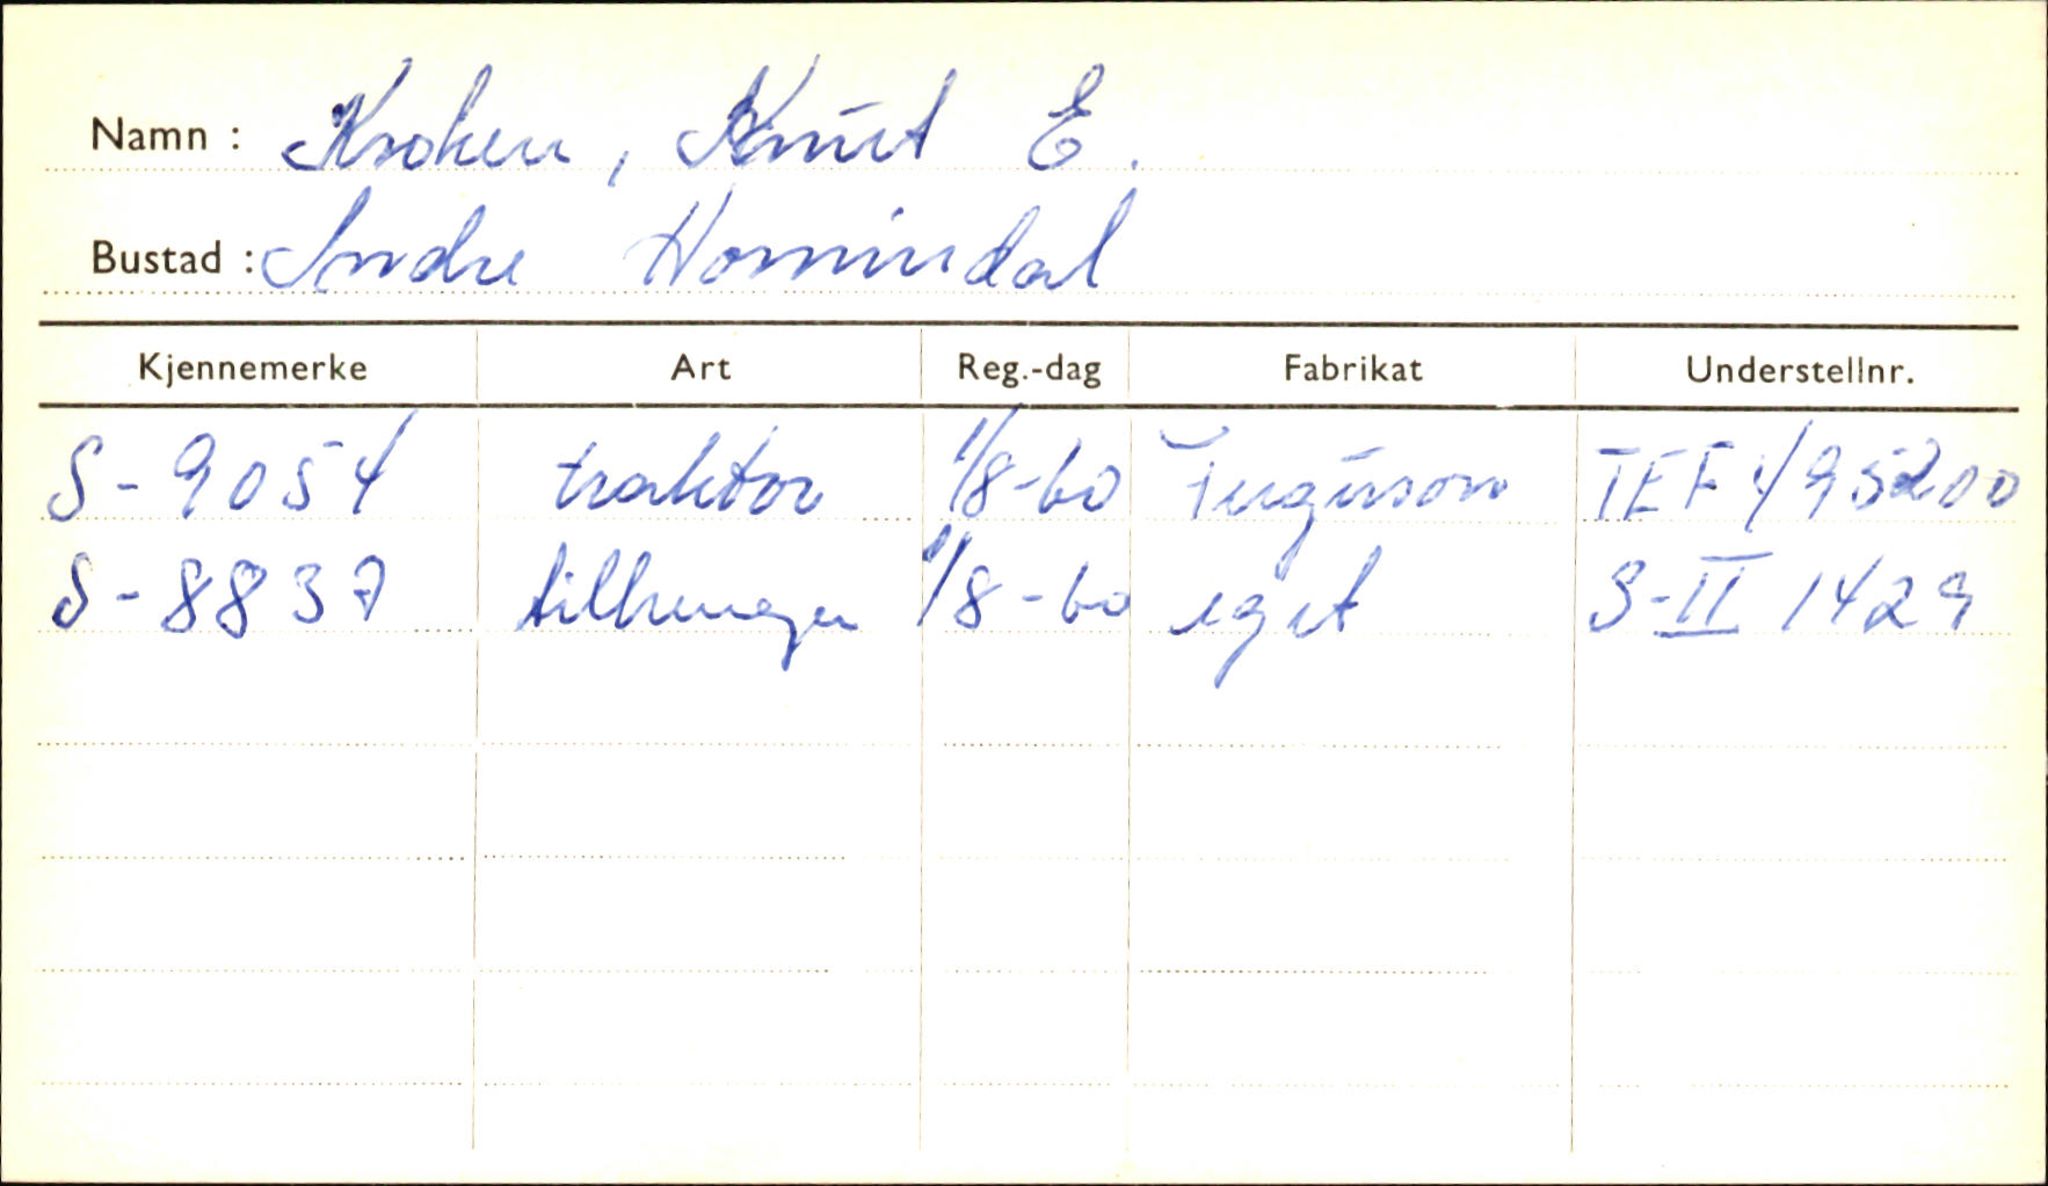 Namn : Kroken, Knut E.
Bustad : Indre Hornindal
Kjennemerke Art Reg.-dag Fabrikat Understellnr.
S-9054 traktor 1/8-60 Ferguson TEF 495200
S-8837 tilhenger 1/8-60 eget S-II 1429